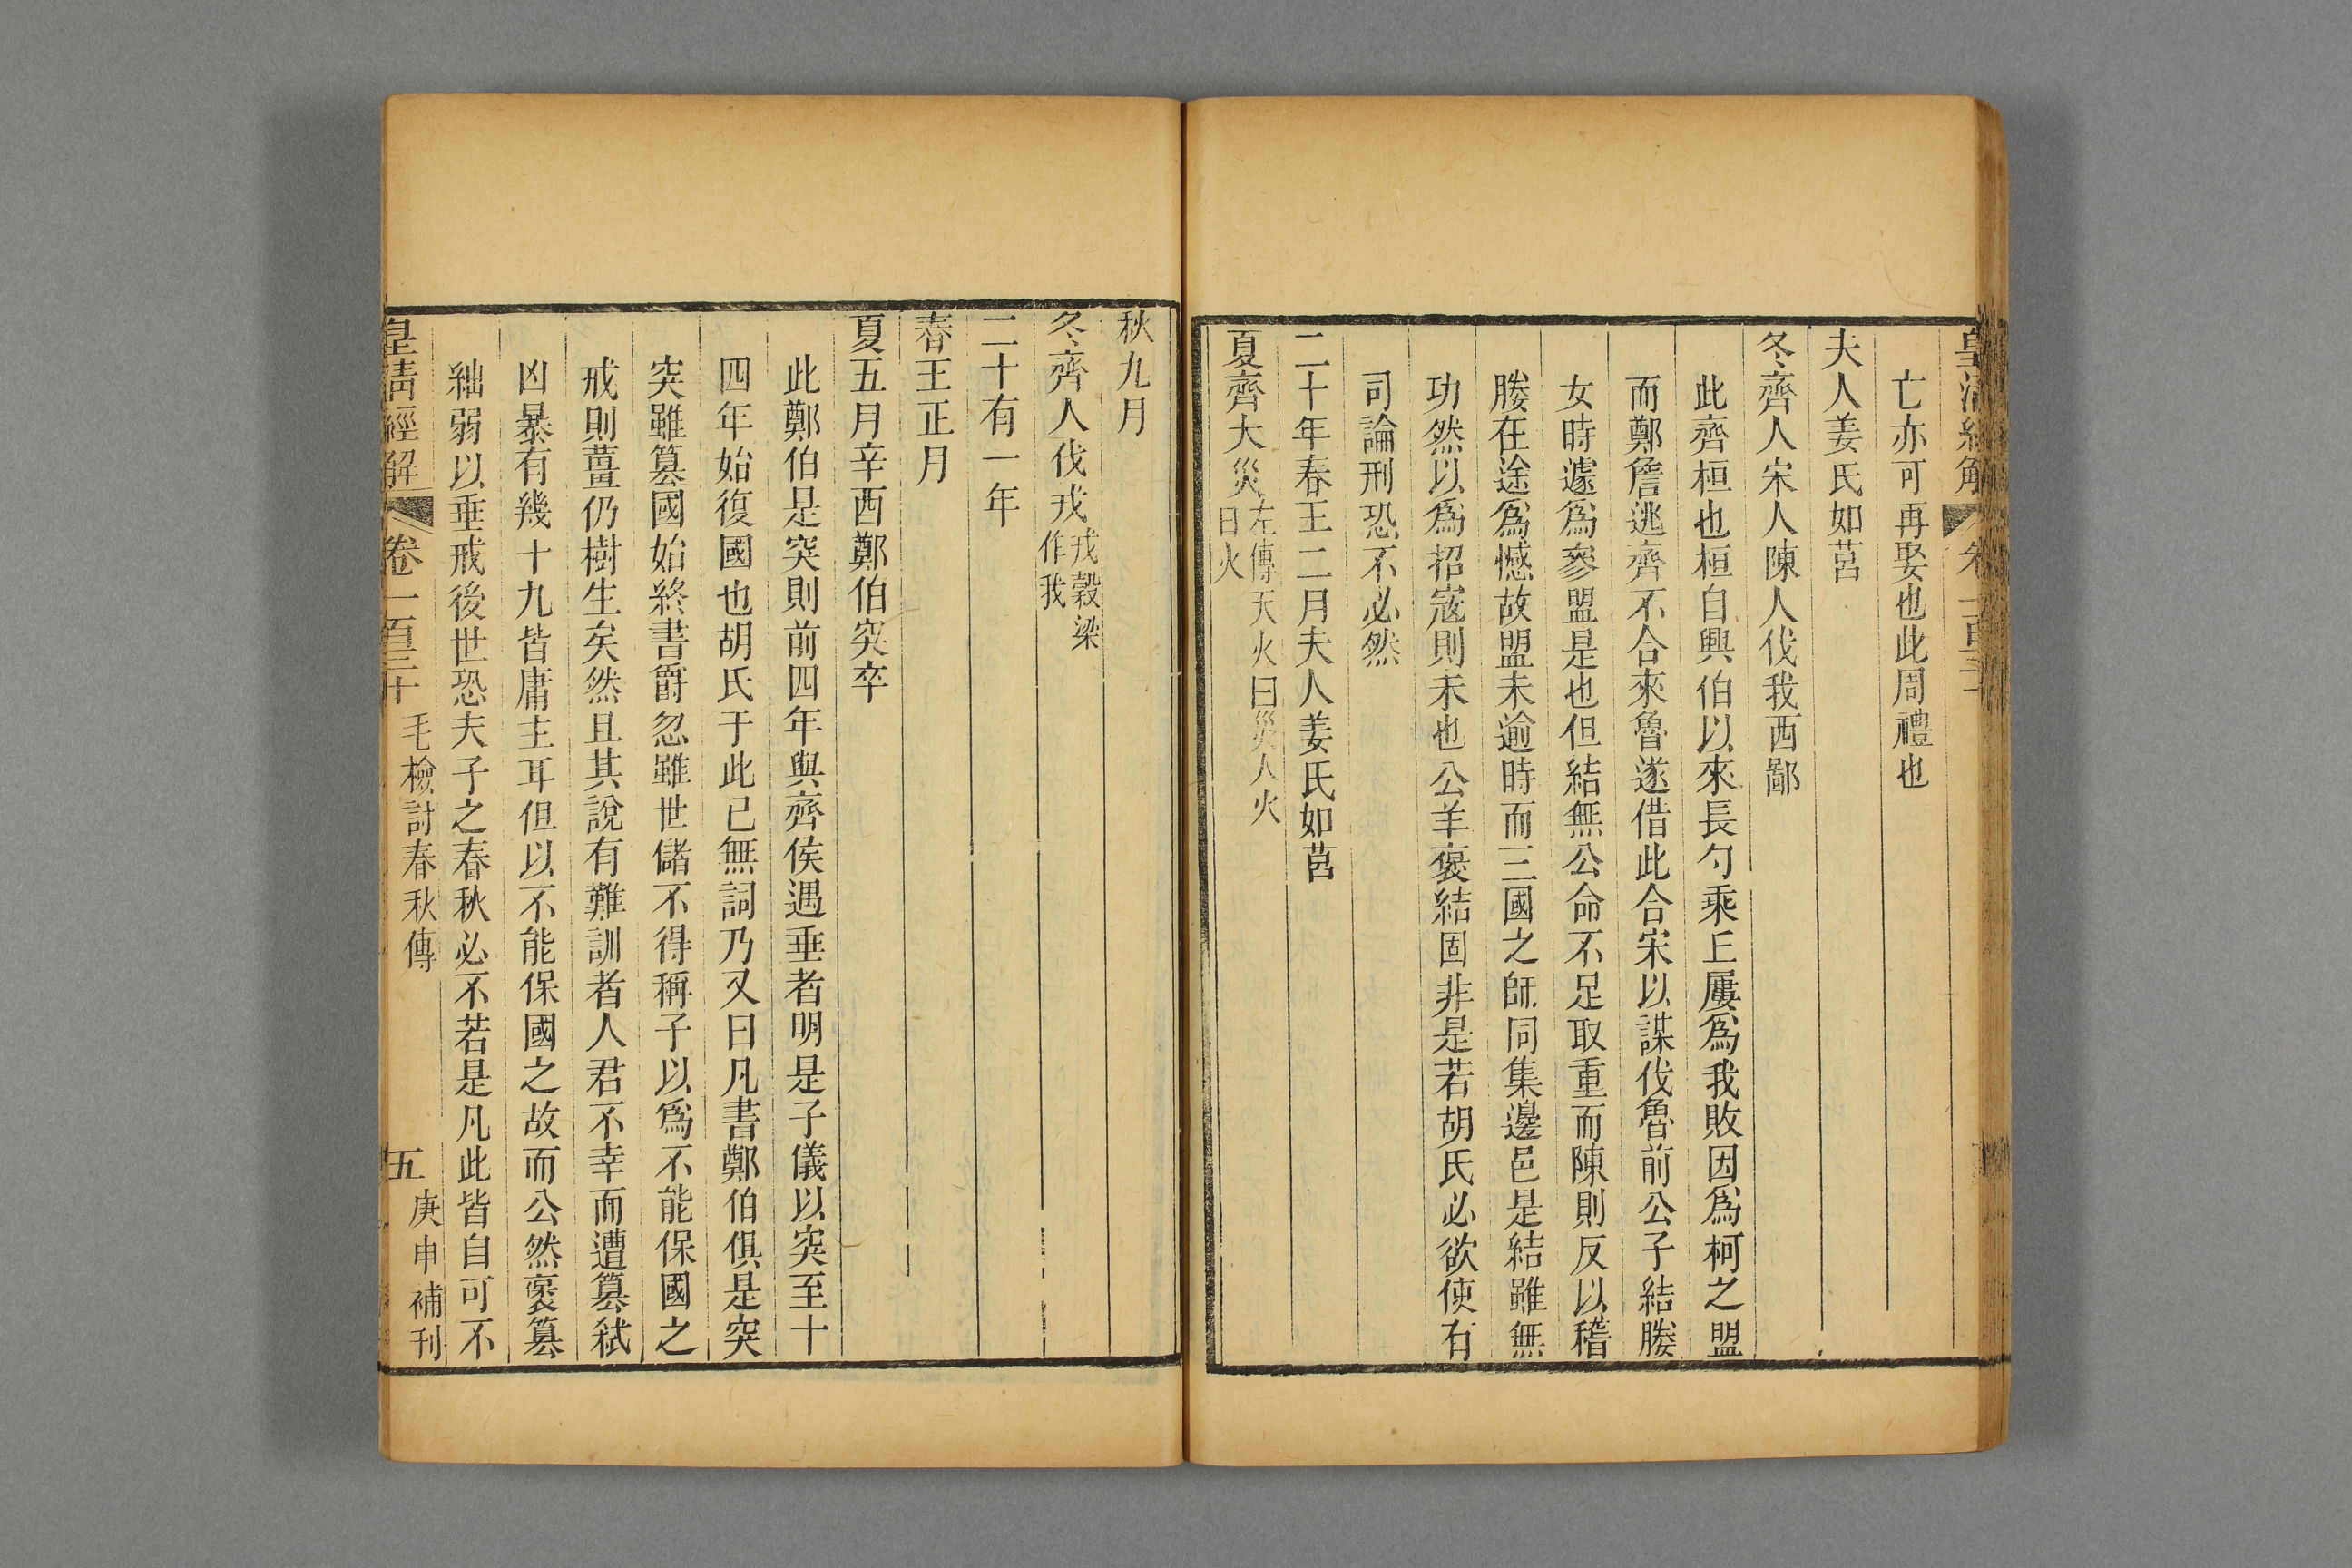 皇清經解 卷一百三十
亡亦可再娶也此周禮也
夫人姜氏如莒
冬齊人宋人陳人伐我西鄙
此齊桓也桓自興伯以來長勺乘丘屢爲我敗因爲柯之盟
而鄭詹逃齊不合來魯遂借此合宋以謀伐魯前公子結媵
女時遽爲參盟是也但結無公命不足取重而陳則反以稽
媵在途爲憾故盟未逾時而三國之師同集邊邑是結雖無
功然以爲招寇則未也公羊褒結固非是若胡氏必欲使有
司論刑恐不必然
二十年春王二月夫人姜氏如莒
夏齊大災左傳天火曰災人火
曰火
秋九月
冬齊人伐戎戎穀梁
作我
二十有一年
春王正月
夏五月辛酉鄭伯突卒
此鄭伯是突則前四年與齊侯遇垂者明是子儀以突至十
四年始復國也胡氏于此已無詞乃又曰凡書鄭伯俱是突
突雖篡國始終書爵忽雖世儲不得稱子以爲不能保國之
戒則薑仍樹生矣然且其說有難訓者人君不幸而遭篡弒
凶暴有幾十九皆庸主耳但以不能保國之故而公然褒篡
紬弱以垂戒後世恐夫子之春秋必不若是凡此皆自可不
皇清經解 卷一百三十 毛檢討春秋傳 五 庚申補刊